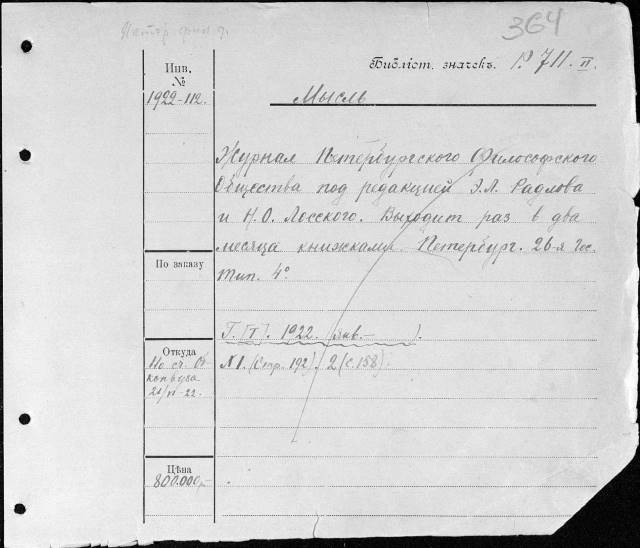 364
Инв. №
1922-112.
Библіот. значекъ. P. 711. II.
Мысль
Журнал Петербургского Философского
Общества под редакцией Э.Л. Радлова
и Н.О. Лосского. Выходит раз в два
месяца книжками. Петербург. 26-я Гос.
Тип. 4°
По заказу
Г. [I]. 1922. (янв.– ).
Откуда
№1. (Стр. 192). 2 (с. 158).
По сч.
21/VI-22.
Цѣна
800.000 р